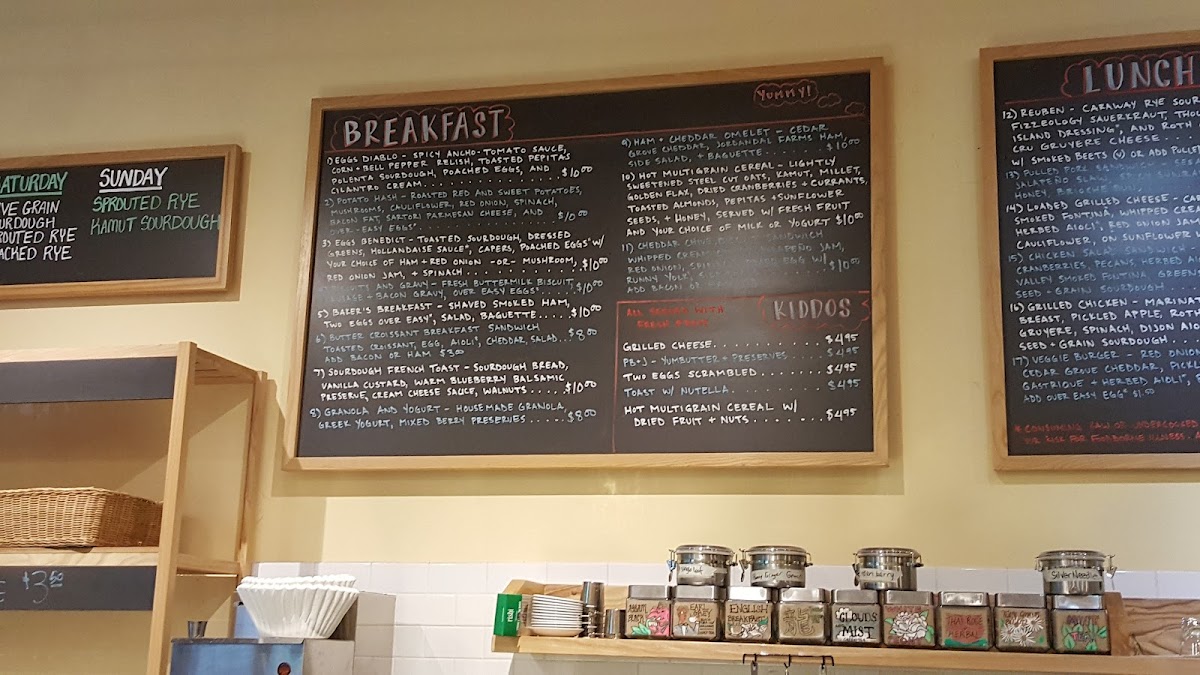 SATURDAY
FIVE GRAIN
SOURDOUGH
SPROUTED RYE
CRACKED RYE
SUNDAY
SPROUTED RYE
KAMUT SOURDOUGH
BREAKFAST
YUMMY!
1) EGGS DIABLO - SPICY ANCHO-TOMATO SAUCE,
CORN + BELL PEPPER RELISH, TOASTED PEPITAS
POLENTA SOURDOUGH, POACHED EGGS, AND
CILANTRO CREAM. $10.00
2) POTATO HASH - ROASTED RED AND SWEET POTATOES,
MUSHROOMS, CAULIFLOWER, RED ONION, SPINACH,
BACON FAT, SARTORI PARMESAN CHEESE, AND
OVER-EASY EGGS* $10.00
3) EGGS BENEDICT - TOASTED SOURDOUGH, DRESSED
GREENS, HOLLANDAISE SAUCE*, CAPERS, POACHED EGGS* W/
YOUR CHOICE OF HAM + RED ONION -OR- MUSHROOM,
RED ONION JAM, + SPINACH $10.00
AND GRAVY - FRESH BUTTERMILK BISCUIT,
SAUSAGE + BACON GRAVY, OVER EASY EGGS* $10.00
5) BAKER'S BREAKFAST - SHAVED SMOKED HAM,
TWO EGGS OVER EASY*, SALAD, BAGUETTE $10.00
6) BUTTER CROISSANT BREAKFAST SANDWICH
TOASTED CROISSANT, EGG, AIOLI*, CHEDDAR, SALAD $8.00
ADD BACON OR HAM $3.00
7) SOURDOUGH FRENCH TOAST - SOURDOUGH BREAD,
VANILLA CUSTARD, WARM BLUEBERRY BALSAMIC
PRESERVE, CREAM CHEESE SAUCE, WALNUTS $10.00
8) GRANOLA AND YOGURT - HOUSEMADE GRANOLA,
GREEK YOGURT, MIXED BERRY PRESERVES $8.00
9) HAM + CHEDDAR OMELET - CEDAR
GROVE CHEDDAR, JORDANDAL FARMS HAM,
SIDE SALAD, + BAGUETTE $10.00
10) HOT MULTIGRAIN CEREAL - LIGHTLY
SWEETENED STEEL CUT OATS, KAMUT, MILLET,
GOLDEN FLAX, DRIED CRANBERRIES + CURRANTS,
TOASTED ALMONDS, PEPITAS + SUNFLOWER
SEEDS, + HONEY, SERVED W/ FRESH FRUIT
AND YOUR CHOICE OF MILK OR YOGURT $10.00
11) CHEDDAR SANDWICH
WHIPPED JALAPEÑO JAM,
RED ONION, EGG W/
RUNNY YOLK, $10.00
ADD BACON OR
ALL SERVED WITH
FRESH FRUIT
KIDDOS
GRILLED CHEESE $4.95
PB+J - YUMBUTTER + PRESERVES $4.95
TWO EGGS SCRAMBLED $4.95
TOAST W/ NUTELLA $4.95
HOT MULTIGRAIN CEREAL W/
DRIED FRUIT + NUTS $4.95
LUNCH
12) REUBEN - CARAWAY RYE SOUR
FIZZEOLOGY SAUERKRAUT, THOU
ISLAND DRESSING*, AND ROTH
CRU GRUYERE CHEESE
W/ SMOKED BEETS (V) OR ADD PULLE
13) PULLED PORK
JALAPEÑO SLAW,
HONEY BRIOCHE
14) LOADED GRILLED CHEESE - CA
SMOKED FONTINA, WHIPPED CREA
HERBED AIOLI*, RED ONION JAM
CAULIFLOWER, ON SUNFLOWER
15) CHICKEN SALAD
CRANBERRIES, PECANS, HERBED AI
VALLEY SMOKED FONTINA, GREEN
SEED + GRAIN SOURDOUGH
16) GRILLED CHICKEN - MARINA
BREAST, PICKLED APPLE, ROTH
GRUYERE, SPINACH, DIJON AND
SEED + GRAIN SOURDOUGH
17) VEGGIE BURGER - RED ONION
CEDAR GROVE CHEDDAR, PICKL
GASTRIQUE + HERBED AIOLI*,
ADD OVER EASY EGG* $1.00
* CONSUMING RAW OR UNDERCOOKED
THE RISK FOR FOODBORNE ILLNESS.
$3.50
rishi
Silver Needle
EARL GREY
ENGLISH
BREAKFAST
CLOUDS
MIST
THAI RICE
HERBAL